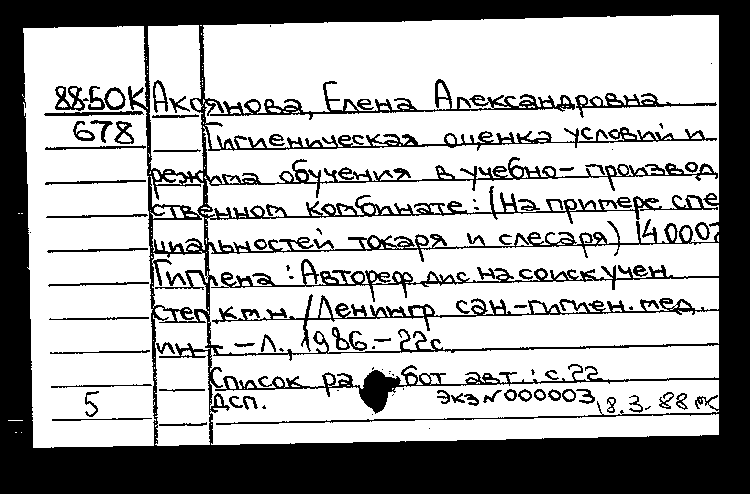 88-50К Аксянова, Елена Александровна.
678 Гигиеническая оценка условий и
режима обучения в учебно-производ
ственном комбинате: (На примере спе
циальностей токаря и слесаря) 14.00.07
Гигиена: Автореф. дис. на соиск. учен.
степ. к.м.н. / Ленингр. сан.-гигиен. мед.
ин-т. - Л., 1986. - 22с.
Список работ авт.: с.22
5 ДСП. экз N000003 18.3.88